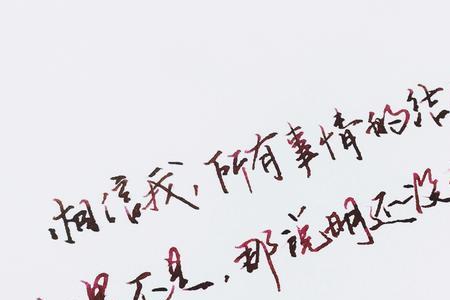 相信我，所有事情的结
果不是，那说明还没